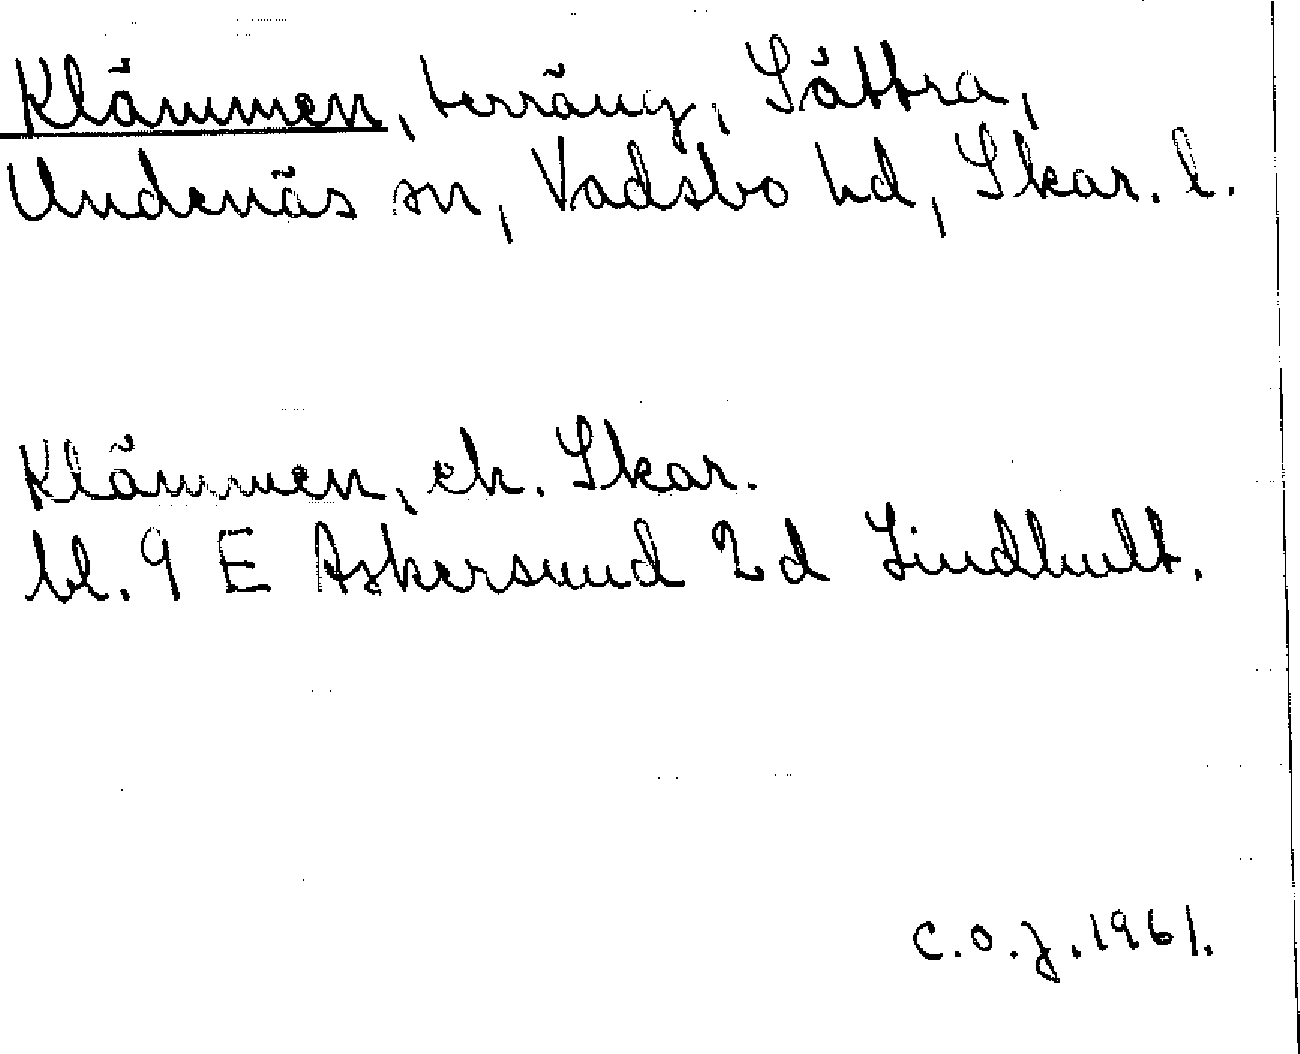 Klämmen, terräng, Sättra,
Undenäs sn, Vadsbo hd, Skar. l.
Klämmen, ek. Skar.
bl. 9 E Askersund 2d Lindhult.
C.O.J. 1961.